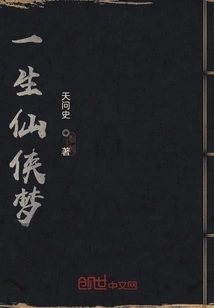 一生仙侠梦
天问史 ◎ 著
创世中文网